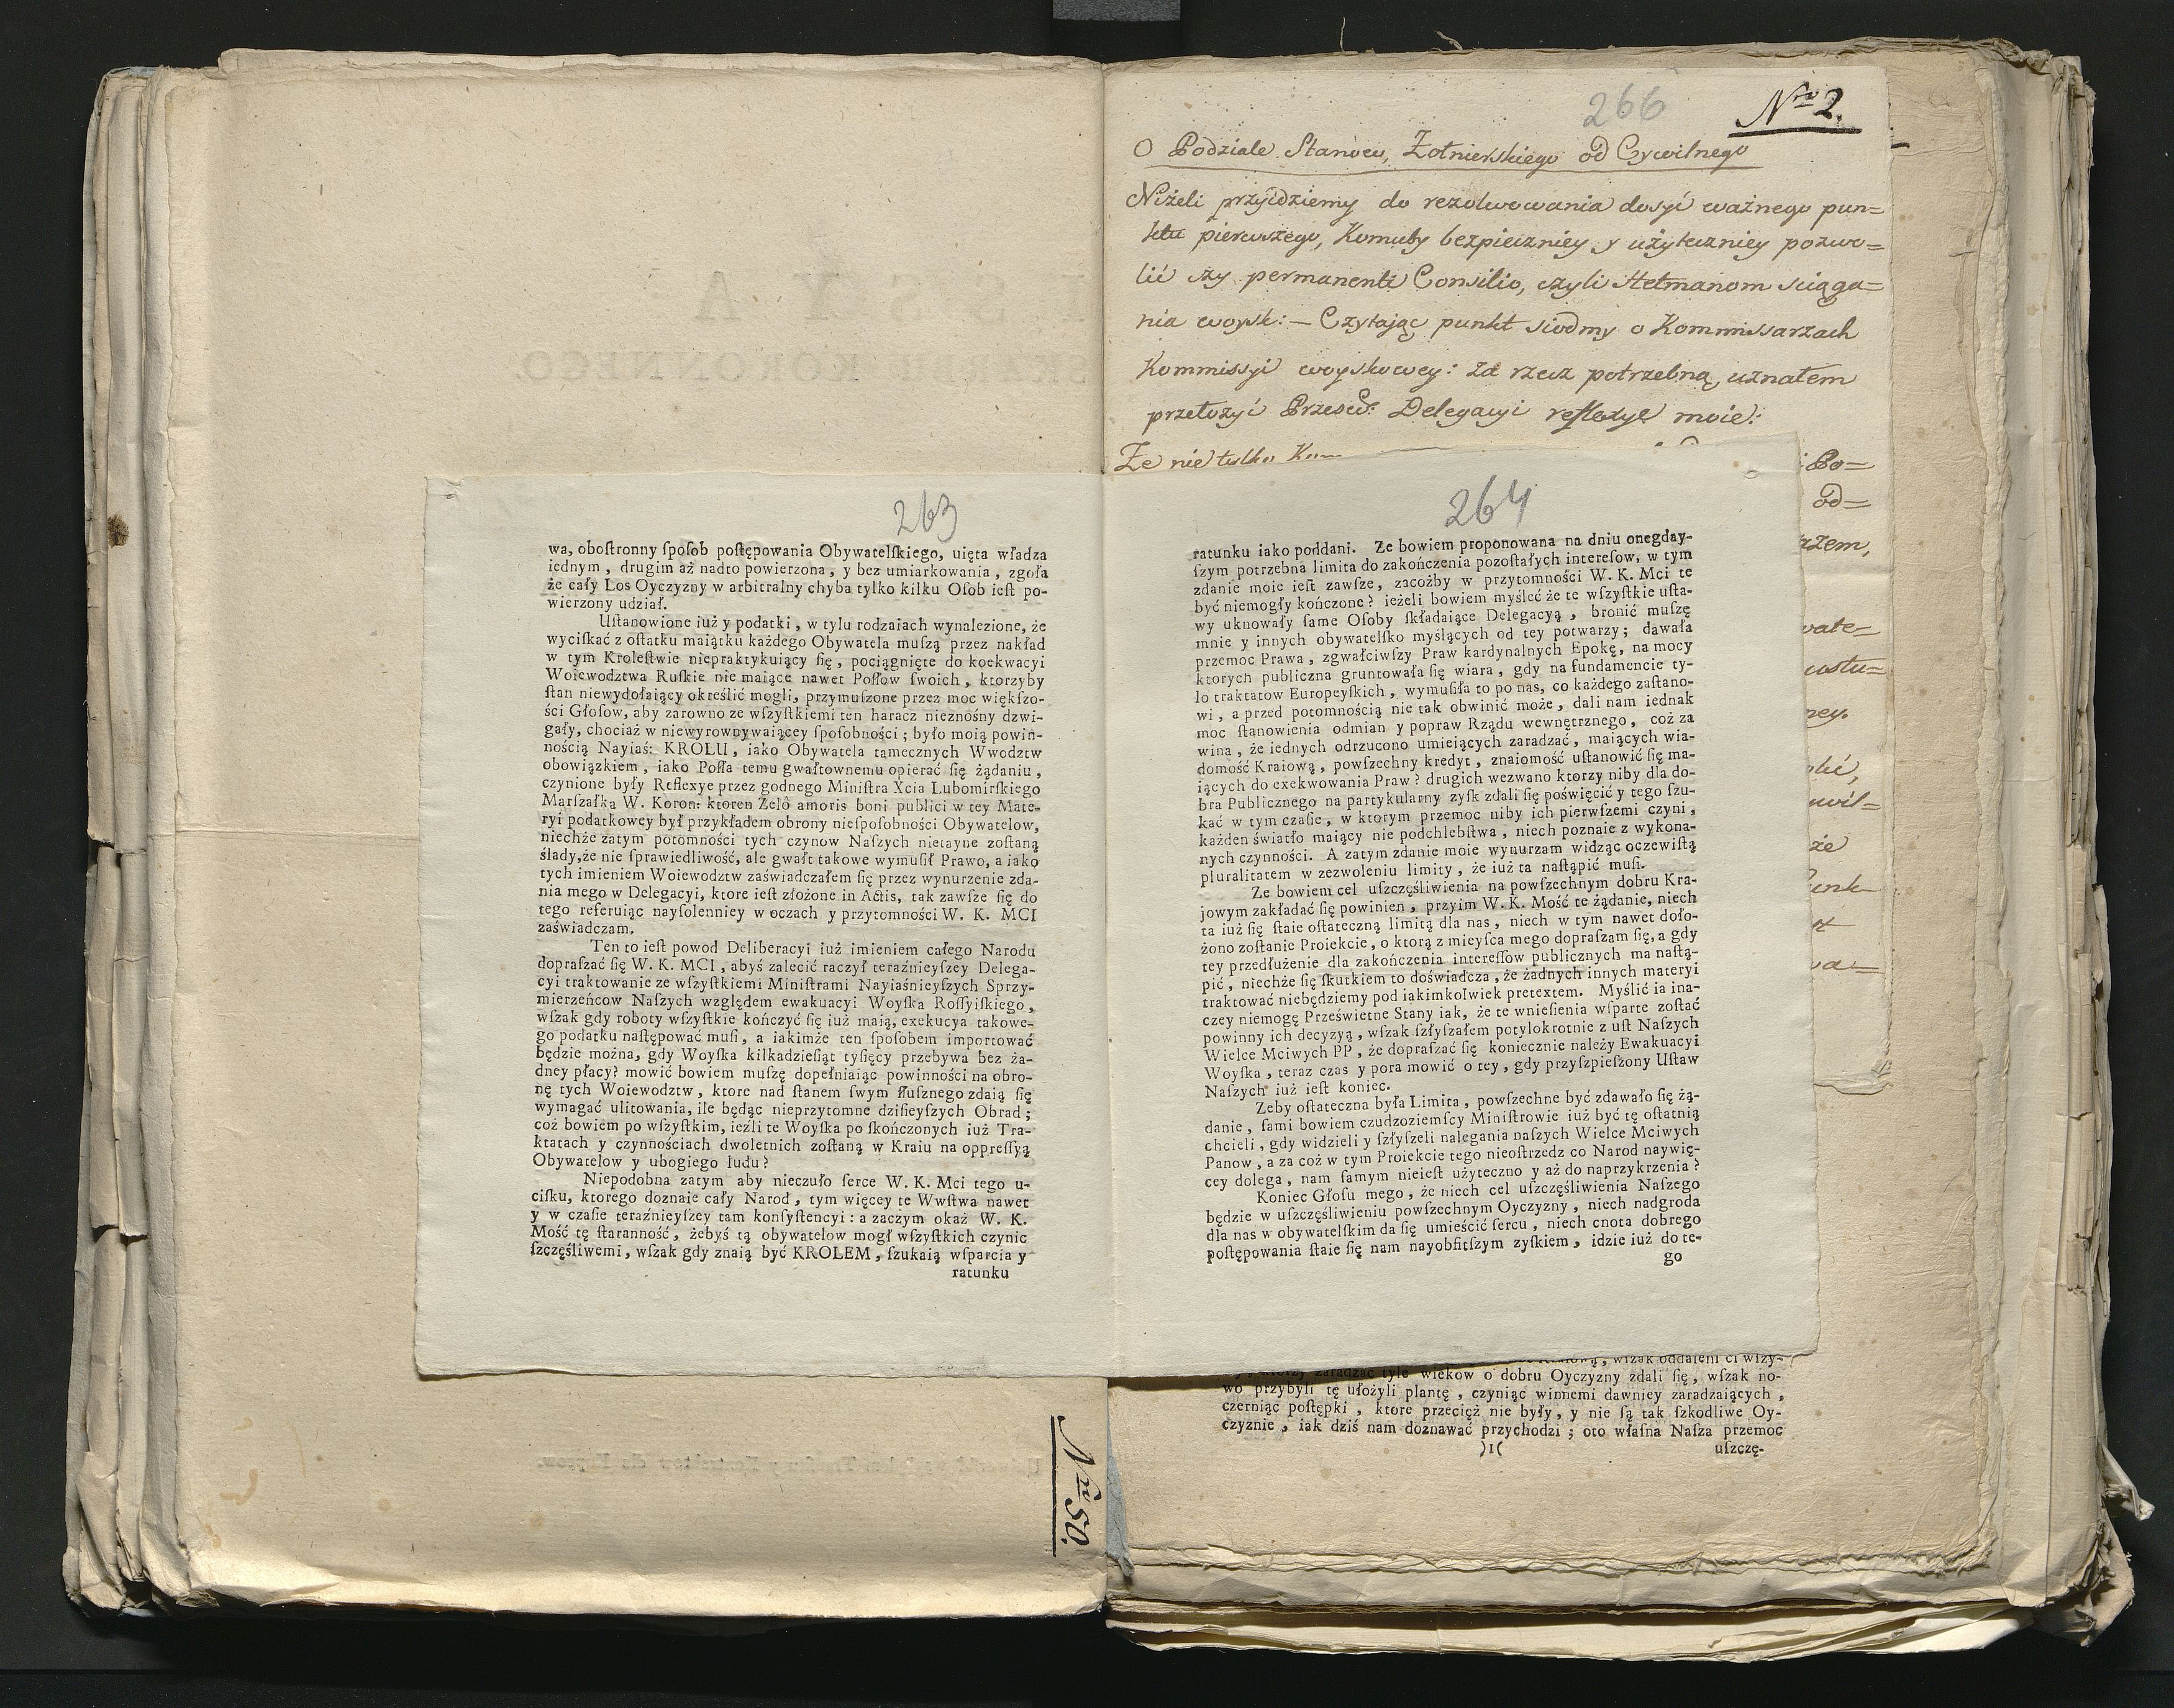 263
wa, oboſtronny ſpoſob poſtępowania Obywatelſkiego, uięta władza
iednym, drugim aż nadto powierzona, y bez umiarkowania, zgoła
że cały Los Oyczyzny w arbitralny chyba tylko kilku Oſob ieſt po-
wierzony udział.
Uſtanowione iuż y podatki, w tylu rodzaiach wynalezione, że
wyciſkać z oſtatku maiątku każdego Obywatela muſzą przez nakład
w tym Kroleſtwie niepraktykuiący ſię, pociągnięte do koekwacyi
Woiewodztwa Ruſkie nie maiące nawet Poſłow ſwoich, ktorzyby
ſtan niewydołaiący okreſlić mogli, przymuſzone przez moc więkſzo-
ści Głoſow, aby zarowno ze wſzyſtkiemi ten haracz nieznośny dzwi-
gały, chociaż w niewyrownywaiącey ſpoſobności; było moią powin-
nością Nayiaś: KROLU, iako Obywatela tamecznych Wwodztw
obowiązkiem, iako Poſła temu gwałtownemu opierać ſię żądaniu,
czynione były Reflexye przez godnego Miniſtra Xcia Lubomirſkiego
Marſzałka W. Koron: ktoren Zelô amoris boni publici w tey Mate-
ryi podatkowey był przykładem obrony nieſpoſobności Obywatelow,
niechże zatym potomności tych czynow Naſzych nietayne zoſtaną
ślady, że nie ſprawiedliwość, ale gwałt takowe wymuſił Prawo, a iako
tych imieniem Woiewodztw zaświadczałem ſię przez wynurzenie zda-
nia mego w Delegacyi, ktore ieſt złożone in Actis, tak zawſze ſię do
tego referuiąc nayſolenniey w oczach y przytomności W. K. MCI
zaświadczam.
Ten to ieſt powod Deliberacyi iuż imieniem całego Narodu
dopraſzać ſię W. K. MCI, abyś zalecić raczył teraźnieyſzey Delega-
cyi traktowanie ze wſzyſtkiemi Miniſtrami Nayiaśnieyſzych Sprzy-
mierzeńcow Naſzych względem ewakuacyi Woyſka Roſſyiſkiego,
wſzak gdy roboty wſzyſtkie kończyć ſię iuż maią, exekucya takowe-
go podatku naſtępować muſi, a iakimże ten ſpoſobem importować
będzie można, gdy Woyſka kilkadzieſiąt tyſięcy przebywa bez ża-
dney płacy? mowić bowiem muſzę dopełniaiąc powinności na obro-
nę tych Woiewodztw, ktore nad ſtanem ſwym ſłuſznego zdaią ſię
wymagać ulitowania, ile będąc nieprzytomne dziſieyſzych Obrad;
coż bowiem po wſzyſtkim, ieźli te Woyſka po ſkończonych iuż Tra-
ktatach y czynnościach dwoletnich zoſtaną w Kraiu na oppreſſyą
Obywatelow y ubogiego ludu?
Niepodobna zatym aby nieczuło ſerce W. K. Mci tego u-
ciſku, ktorego doznaie cały Narod, tym więcey te Wwſtwa nawet
y w czaſie teraźnieyſzey tam konſyſtencyi: a zaczym okaż W. K.
Mość tę ſtaranność, żebyś tą obywatelow mogł wſzyſtkich czynic
ſzczęśliwemi, wſzak gdy znaią być KROLEM, ſzukaią wſparcia y
ratunku
No 50.
266
Nro 2.
O Podziale Stanow, Żołnierskiego od Cywilnego
Niżeli przyidziemy do rezolwowania dosyć ważnego pun=
ktu pierwszego, Komuby bezpieczniey y użyteczniey pozwo=
lić czy permanenti Consilio, czyli Hetmanom sciąga=
nia woysk: – Czytając punkt siodmy o Kommissarzach
Kommissyi woyskowey: za rzecz potrzebną uznałem
przełożyć Przesw: Delegacyi reflexye moie:
Że nie tylko
Po=
od=
rzem,
wate=
ustu=
ney.
264
ratunku iako poddani. Ze bowiem proponowana na dniu onegday-
ſzym potrzebna limita do zakończenia pozoſtałych intereſow, w tym
zdanie moie ieſt zawſze, zacożby w przytomności W. K. Mci te
być niemogły kończone? ieżeli bowiem myśleć że te wſzyſtkie uſta-
wy uknowały ſame Oſoby ſkładaiące Delegacyą, bronić muſzę
mnie y innych obywatelſko myślących od tey potwarzy; dawała
przemoc Prawa, zgwałciwſzy Praw kardynalnych Epokę, na mocy
ktorych publiczna gruntowała ſię wiara, gdy na fundamencie ty-
lo traktatow Europeyſkich, wymuſiła to po nas, co każdego zaſtano-
wi, a przed potomnością nie tak obwinić może, dali nam iednak
moc ſtanowienia odmian y popraw Rządu wewnętrznego, coż za
wina, że iednych odrzucono umieiących zaradzać, maiących wia-
domość Kraiową, powſzechny kredyt, znaiomość uſtanowić ſię ma-
iących do exekwowania Praw? drugich wezwano ktorzy niby dla do-
bra Publicznego na partykularny zyſk zdali ſię poświęcić y tego ſzu-
kać w tym czaſie, w ktorym przemoc niby ich pierwſzemi czyni,
każden światło maiący nie podchlebſtwa, niech poznaie z wykona-
nych czynności. A zatym zdanie moie wynurzam widząc oczewiſtą
pluralitatem w zezwoleniu limity, że iuż ta naſtąpić muſi.
Ze bowiem cel uſzczęśliwienia na powſzechnym dobru Kra-
jowym zakładać ſię powinien, przyim W. K. Mość te żądanie, niech
ta iuż ſię ſtaie oſtateczną limitą dla nas, niech w tym nawet doło-
żono zoſtanie Proiekcie, o ktorą z mieyſca mego dopraſzam ſię, a gdy
tey przedłużenie dla zakończenia intereſſow publicznych ma naſtą-
pić, niechże ſię ſkutkiem to doświadcza, że żadnych innych materyi
traktować niebędziemy pod iakimkolwiek pretextem. Myślić ia ina-
czey niemogę Prześwietne Stany iak, że te wnieſienia wſparte zoſtać
powinny ich decyzyą, wſzak szłyſzałem potylokrotnie z uſt Naſzych
Wielce Mciwych PP, że dopraſzać ſię koniecznie należy Ewakuacyi
Woyſka, teraz czas y pora mowić o tey, gdy przyſzpieſzony Uſtaw
Naſzych iuż ieſt koniec.
Zeby oſtateczna była Limita, powſzechne być zdawało ſię żą-
danie, ſami bowiem czudzoziemſcy Miniſtrowie iuż być tę oſtatnią
chcieli, gdy widzieli y ſzłyſzeli nalegania naſzych Wielce Mciwych
Panow, a za coż w tym Proiekcie tego nieoſtrzedz co Narod naywię-
cey dolega, nam ſamym nieieſt użyteczno y aż do naprzykrzenia?
Koniec Głoſu mego, że niech cel uſzczęśliwienia Naſzego
będzie w uſzczęśliwieniu powſzechnym Oyczyzny, niech nadgroda
dla nas w obywatelſkim da ſię umieścić ſercu, niech cnota dobrego
poſtępowania ſtaie ſię nam nayobfitſzym zyſkiem, idzie iuż do te-
go
wſzak oddaleni ci wſzy-
ktorzy zaradzać tyle wiekow o dobru Oyczyzny zdali ſię, wſzak no-
wo przybyli tę ułożyli plantę, czyniąc winnemi dawniey zaradzaiących,
czerniąc poſtępki, ktore przecięż nie były, y nie ſą tak ſzkodliwe Oy-
czyznie, iak dziś nam doznawać przychodzi; oto właſna Naſza przemoc
)1(
uſzczę-